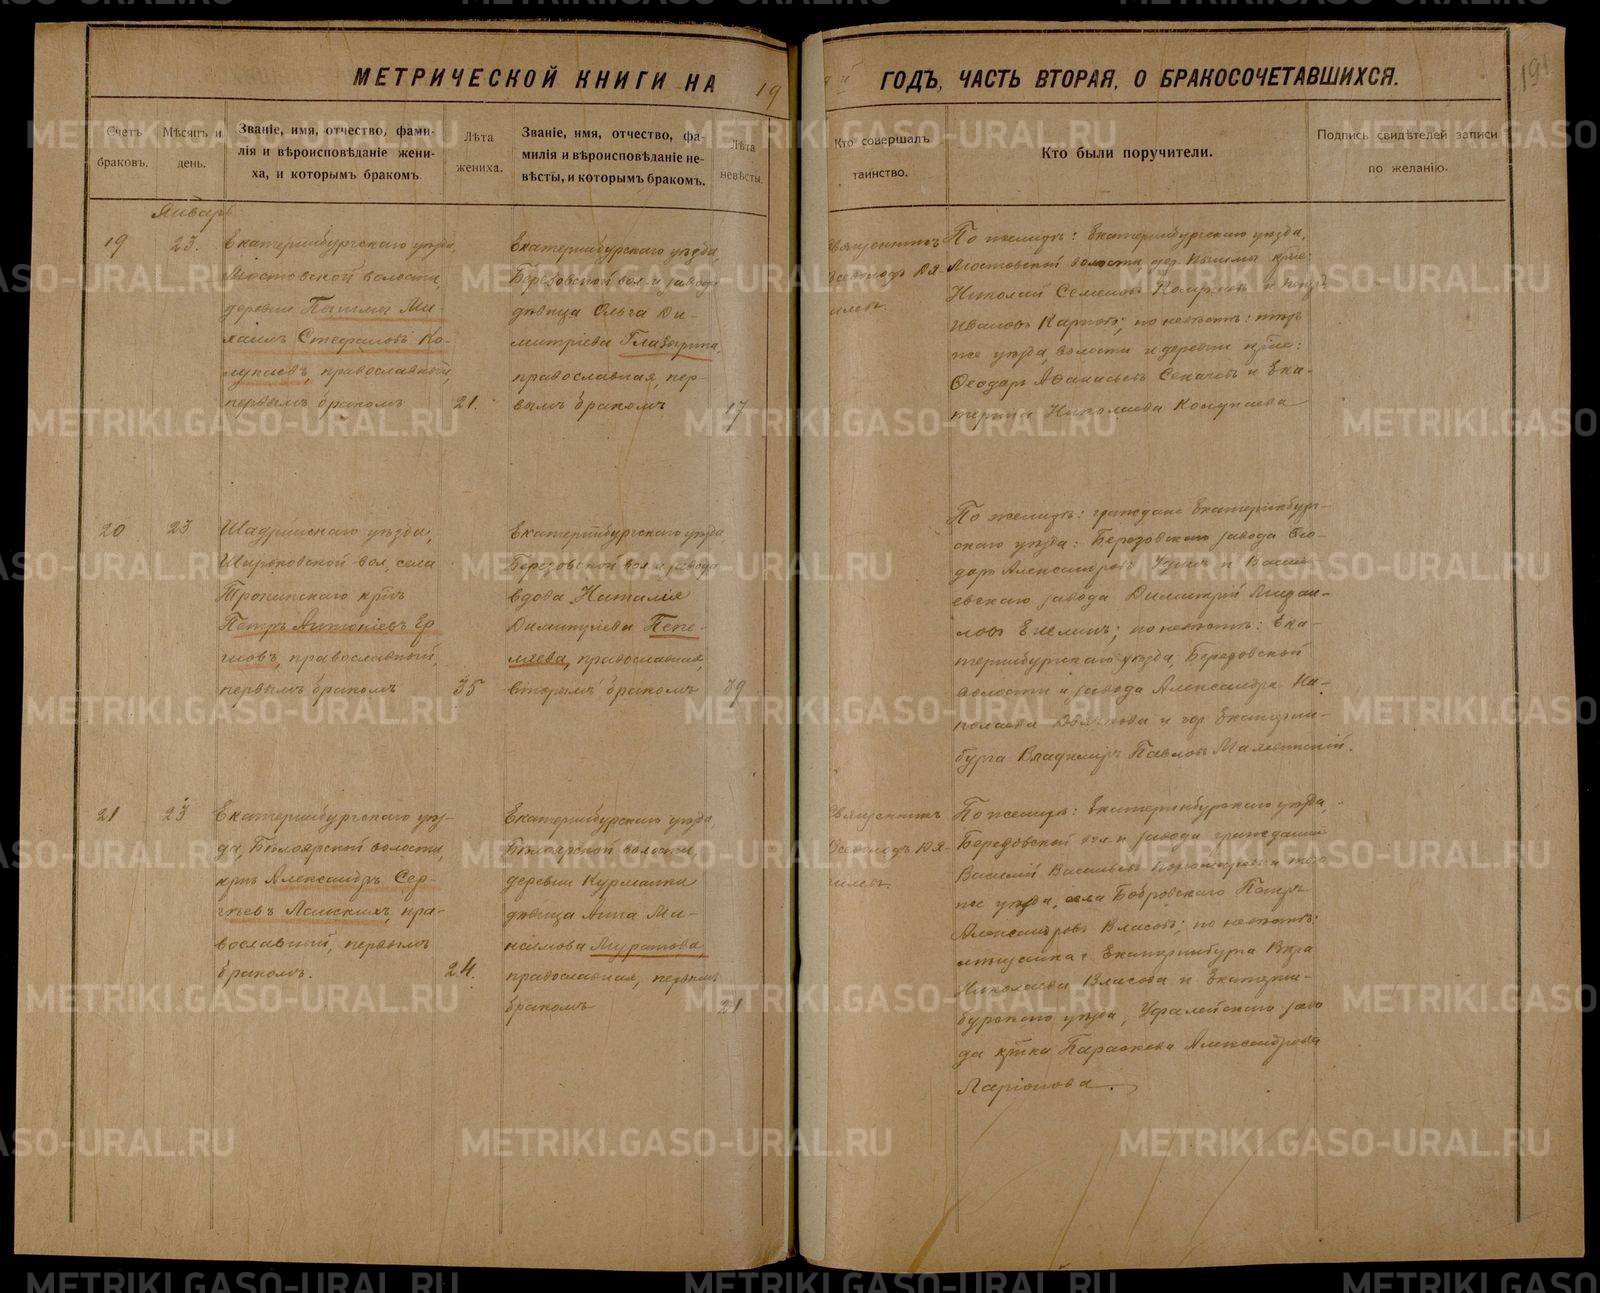 МЕТРИЧЕСКОЙ КНИГИ НА 19
ГОДЪ, ЧАСТЬ ВТОРАЯ, О БРАКОСОЧЕТАВШИХСЯ.
191
Счетъ браковъ.
Мѣсяцъ и день.
Званіе, имя, отчество, фами-
лія и вѣроисповѣданіе жени-
ха, и которымъ бракомъ.
Лѣта жениха.
Званіе, имя, отчество, фа-
милія и вѣроисповѣданіе не-
вѣсты, и которымъ бракомъ.
Лѣта невѣсты.
Кто совершалъ таинство.
Кто были поручители.
Подпись свидѣтелей записи по желанію.
Январь
19
23.
Екатеринбургскаго уѣзда,
Мостовской волости,
деревни Пышмы Ми-
хаилъ Стефановъ Ко-
лупаевъ, православный,
первымъ бракомъ
21.
Екатеринбургскаго уѣзда,
Березовской вол. и завода
дѣвица Ольга Ди-
митріева Глазырина,
православная, пер-
вымъ бракомъ
17
Священникъ
Всеволодъ
По женихѣ: Екатеринбургскаго уѣзда,
Мостовской волости, дер. Пышмы
Николай Семеновъ
Ивановъ Карповъ; по невѣстѣ: того
же уѣзда, волости и деревни
Ѳеодоръ Аѳанасьевъ и Ека-
терина Николаева Колупаева
20
23
Шадринскаго уѣзда,
вол., села
Петръ Антоніевъ Ер
православный,
первымъ бракомъ
35
Екатеринбургскаго уѣзда
Березовской вол. и завода
вдова Наталія
Димитріева Пепе-
ляева, православная,
вторымъ бракомъ
39
По женихѣ: граждане Екатеринбург-
скаго уѣзда: Березовскаго завода Ѳео-
доръ Александровъ и
завода Димитрій
по невѣстѣ: Ека-
теринбургскаго уѣзда, Березовской
волости и завода Александра Ни-
колаева и гор. Екатерин-
бурга Владиміръ Павловъ
21
23
Екатеринбургскаго уѣз-
да, Бѣлоярской волости,
Александръ Сер-
гѣевъ пра-
вославный, первымъ
бракомъ.
24.
Екатеринбургскаго уѣзда,
Бѣлоярской волости,
деревни Курманки
дѣвица Анна Ма-
ксимова Муратова,
православная, первымъ
бракомъ
21
Священникъ
Всеволодъ
По женихѣ: Екатеринбургскаго уѣзда,
Березовской вол. и завода гражданинъ
Василій Васильевъ и того
же уѣзда, села Бобровскаго Петръ
Александровъ Власовъ; по невѣстѣ:
мѣщанка г. Екатеринбурга Вѣра
Николаева Власова и Екатерин-
бургскаго уѣзда, Уфалейскаго заво
да Параскева Александрова
Ларіонова.
METRIKI.GASO-URAL.RU